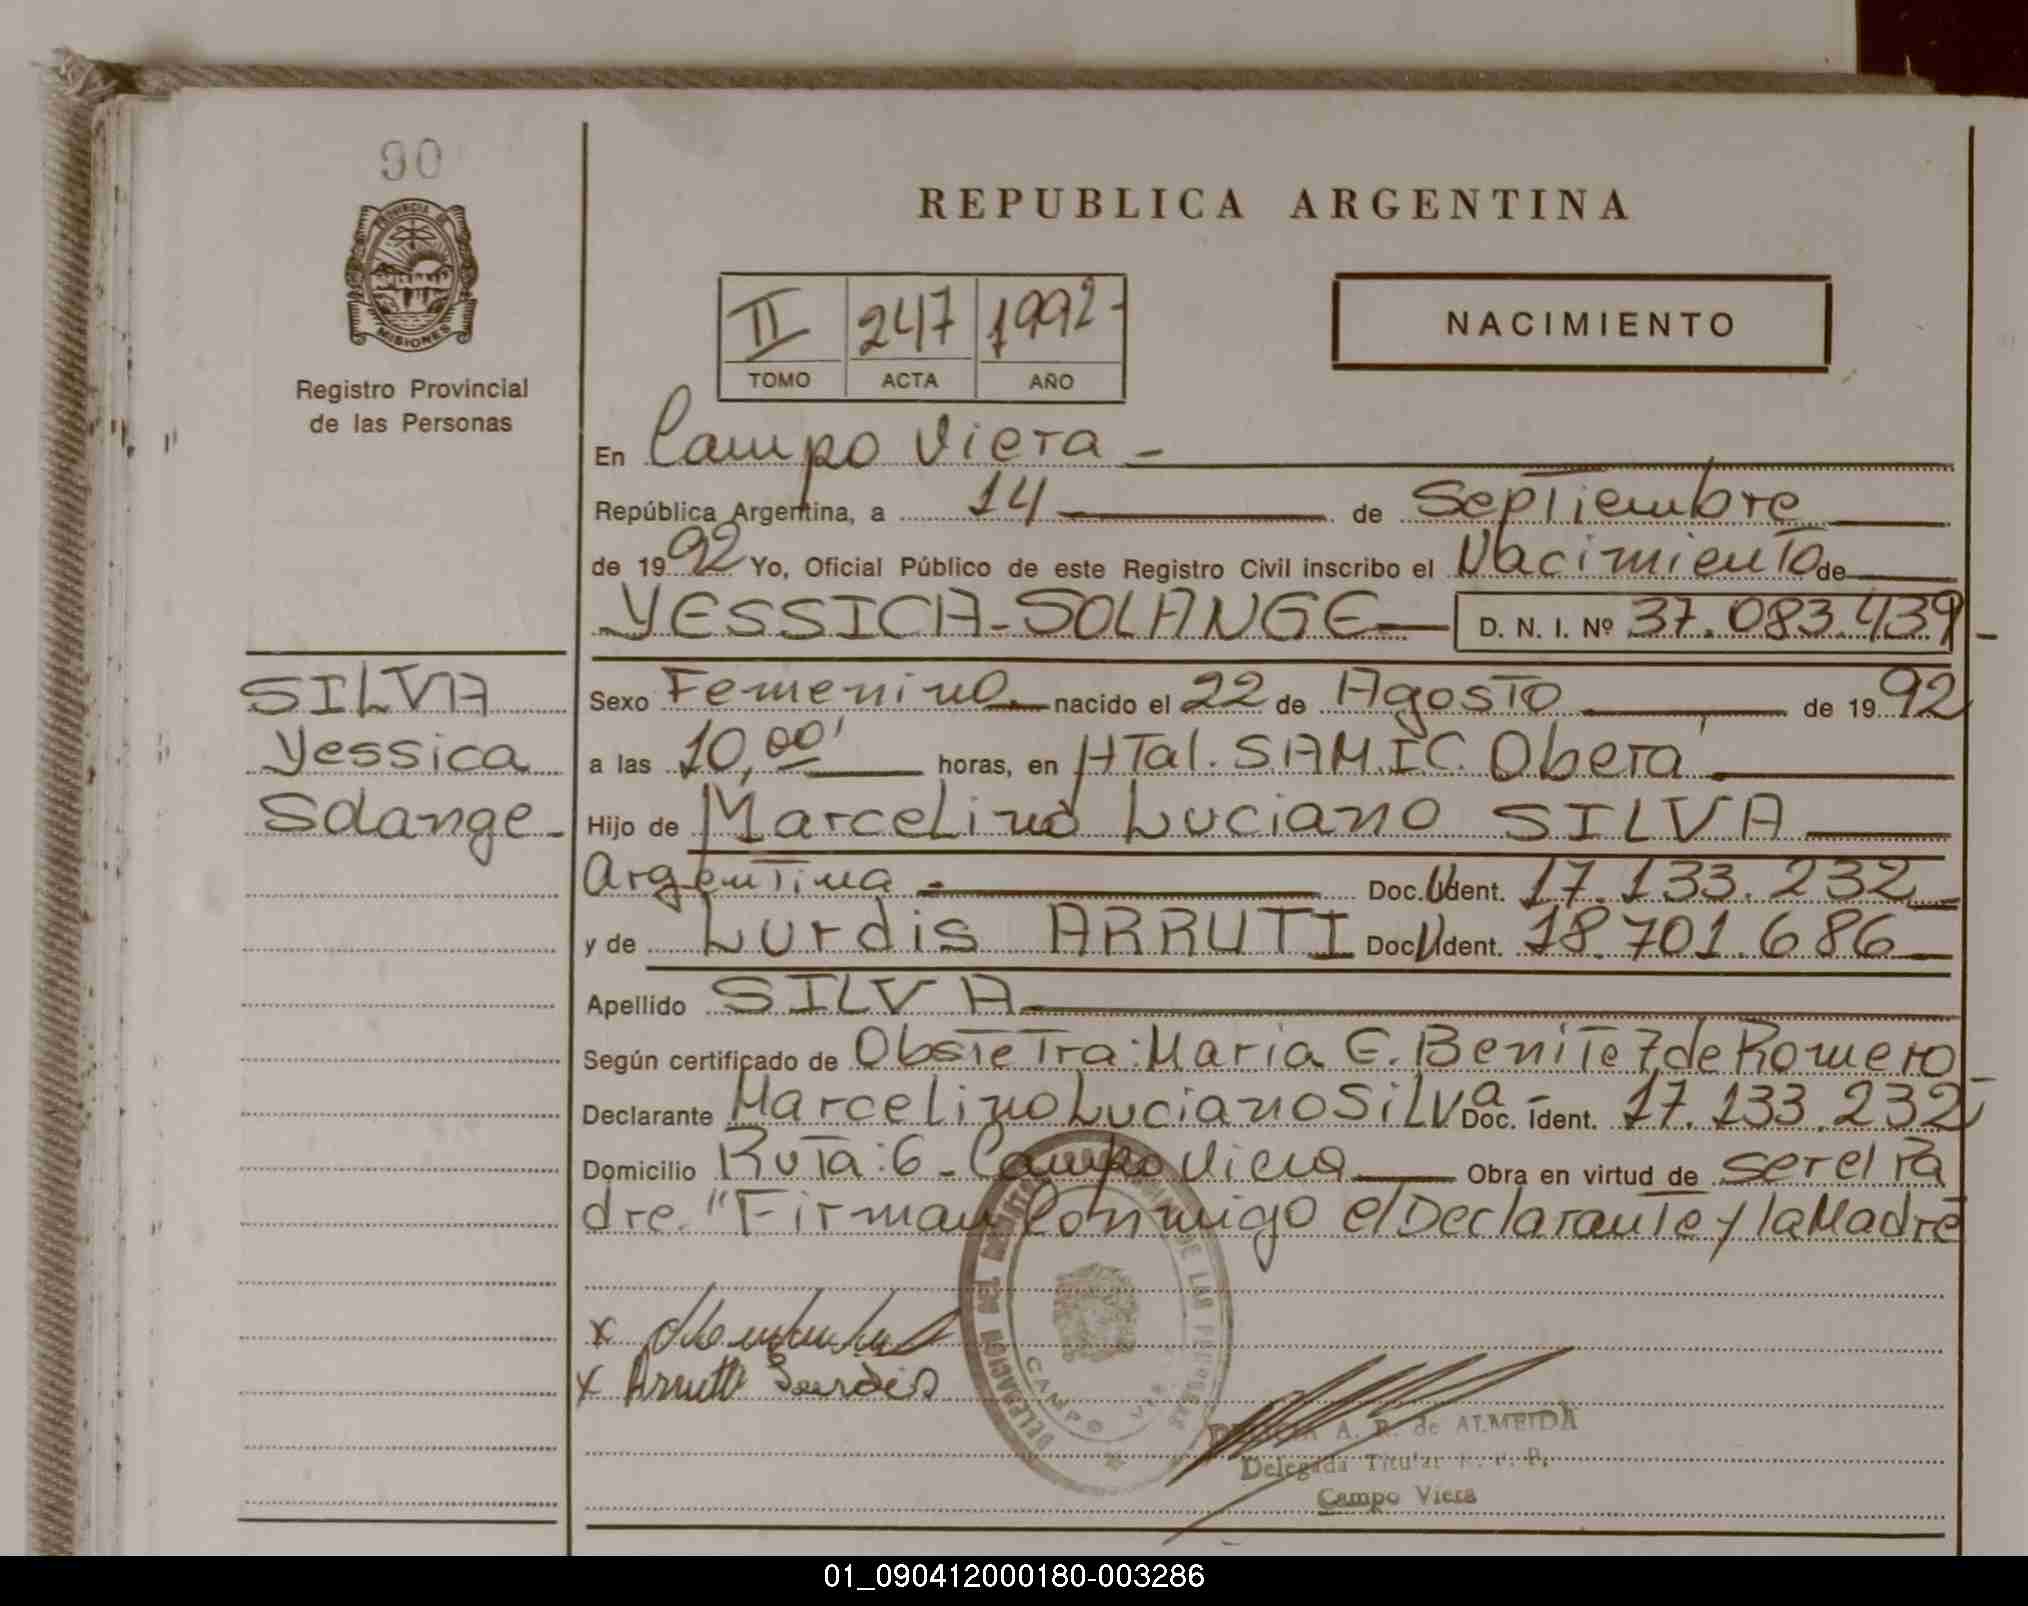 90
PROVINCIA DE
MISIONES
Registro Provincial
de las Personas
SILVA
Yessica
Solange-
REPUBLICA ARGENTINA
II 247 1992-
TOMO ACTA AÑO
NACIMIENTO
En Campo Viera -
República Argentina, a 14 de Septiembre
de 1992 Yo, Oficial Público de este Registro Civil inscribo el Nacimiento de
YESSICA-SOLANGE D. N. I. Nº 37.083.439-
Sexo Femenino nacido el 22 de Agosto de 1992
a las 10,00' horas, en HTal. S.AM.IC. Oberá
Hijo de Marcelino Luciano SILVA
Argentina - Doc. U Ident. 17.133.232
y de Lurdis ARRUTI Doc U Ident. 18.701.686
Apellido SILVA
Según certificado de Obstetra: Maria E. Benitez de Romero
Declarante Marcelino Luciano Silva Doc. Ident. 17.133.232-
Domicilio Ruta: 6 - Campo Viera Obra en virtud de ser el Pa
dre. "Firman Conmigo el Declarante y la Madre
x
x Arruti Lurdis
DELEGACION DE LAS PERSONAS
CAMPO
A. R. de ALMEIDA
Delegada Titular R. P. P.
Campo Viera
01_090412000180-003286